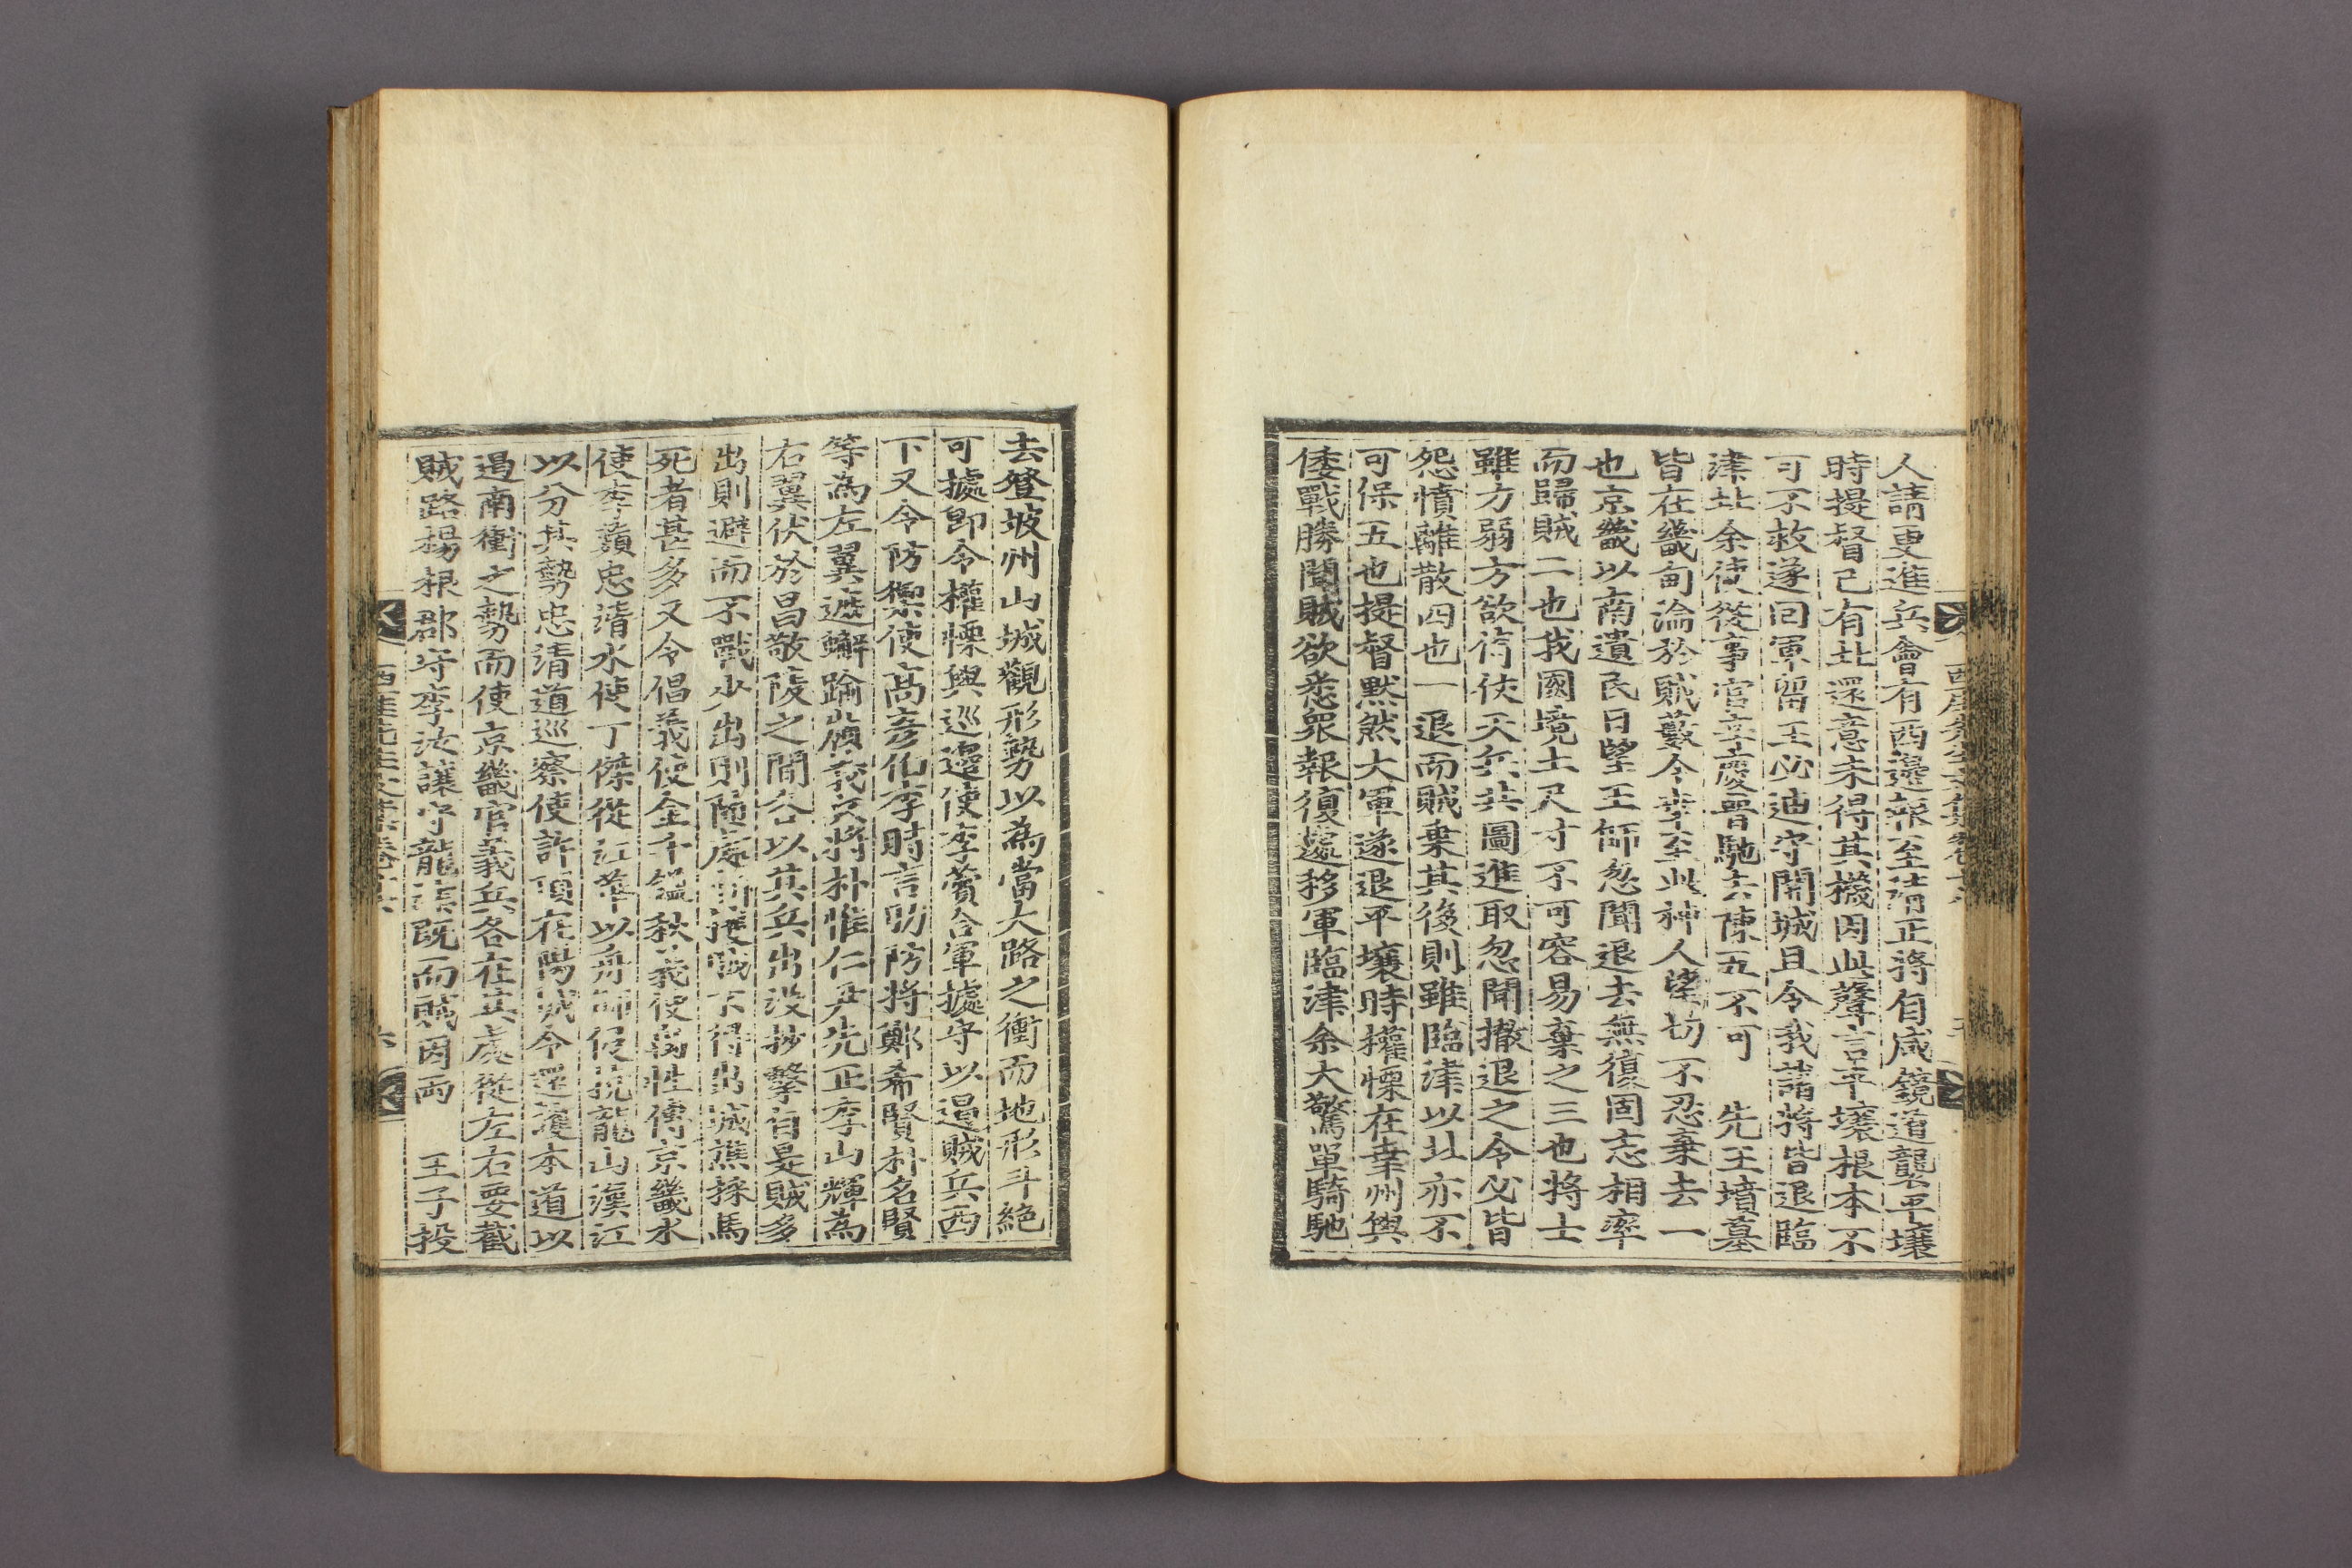 西厓先生文集卷十六
人請更進兵會有西邊報至清正將自咸鏡道襲平壤
時提督已有北還意未得其機因此聲言平壤根本不
可不救遂回軍留王必迪守開城且令我諸將皆退臨
津北余使從事官辛慶晉馳去陳五不可 先王墳墓
皆在畿甸淪於賊藪今幸至此神人望切不忍棄去一
也京畿以南遺民日望王師忽聞退去無復固志相率
而歸賊二也我國境土尺寸不可容易棄之三也將士
雖力弱方欲倚仗天兵共圖進取忽聞撤退之令必皆
怨憤離散四也一退而賊乗其後則雖臨津以北亦不
可保五也提督默然大軍遂退平壤時權慄在幸州與
倭戰勝聞賊欲悉衆報復遽移軍臨津余大驚單騎馳
去登坡州山城觀形勢以為當大路之衝而地形斗絶
可據即令權慄與巡邊使李薲合軍據守以遏賊兵西
下又令防禦使高彦伯李時言助防將鄭希賢朴名賢
等為左翼遮蠏踰嶺義兵將朴惟仁尹先正李山輝為
右翼伏於昌敬陵之間各以其兵出沒抄擊自是賊多
出則避而不戰少出則隨處 賊不得出城樵採馬
死者甚多又令倡義使金千鎰秋義使禹性傳京畿水
使李薲忠清水使丁傑從江華以舟師 龍山漢江
以分其勢忠清道巡察使許頊在陽城令還護本道以
遏南衝之勢而使京畿官義兵各在其處從左右要截
賊路楊根郡守李汝讓守龍津既而賊因両 王子投
西厓先生文集卷十六
六